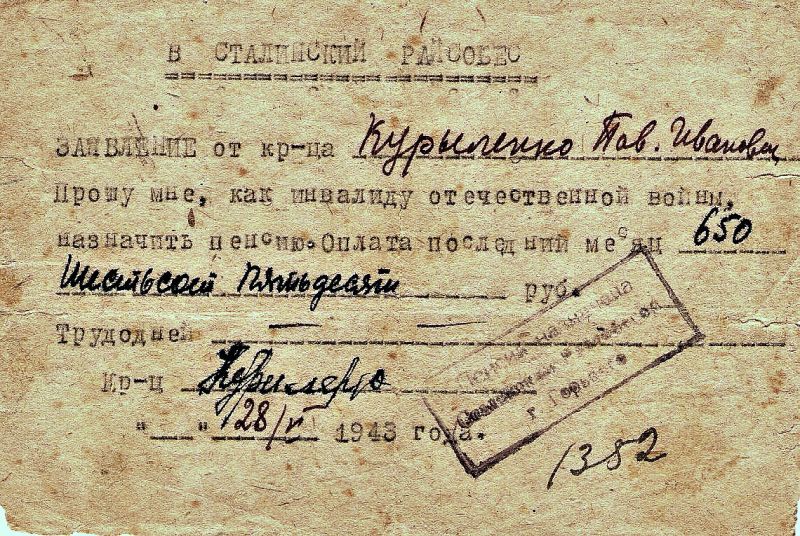 В СТАЛИНСКИЙ РАЙСОБЕС
ЗАЯВЛЕНИЕ от кр-ца Курыленко Пав. Иванович
Прошу мне, как инвалиду отечественной войны,
назначить пенсию.Оплата последний месяц 650
Шестьсот пятьдесят руб.
Трудодней — —
Кр-ц Курыленко
"__" 28/VI 1943 года.
Пенсия назначена
г Горького
1382